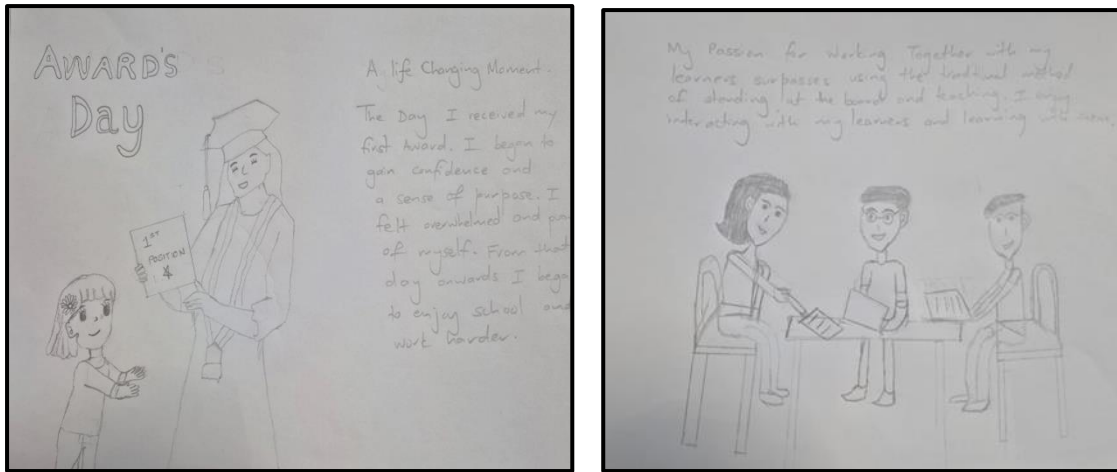 AWARD'S
Day
A life Changing Moment.
The Day I received my
first Award. I began to
gain confidence and
a sense of purpose. I
felt overwhelmed and
of myself. From that
day onwards I
to enjoy school
work harder.
1ST
POSITION
My Passion for working Together with my
learners surpasses using the method
of standing at the board and teaching. I enjoy
interacting with my learners and learning with